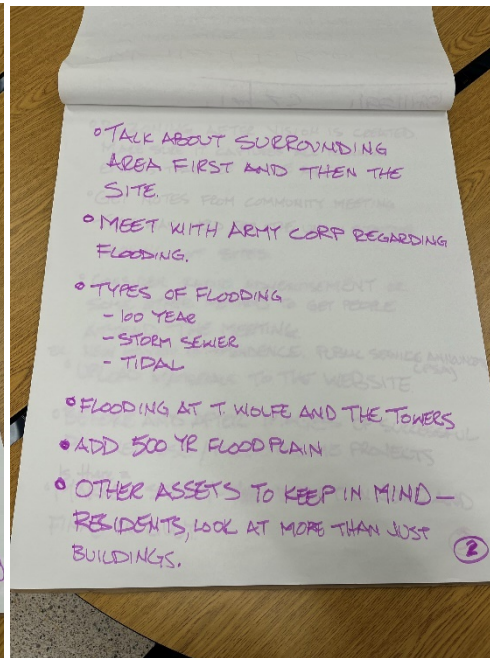 ° TALK ABOUT SURROUNDING
AREA FIRST AND THEN THE
SITE.
° MEET WITH ARMY CORP REGARDING
FLOODING.
° TYPES OF FLOODING
- 100 YEAR
- STORM SEWER
- TIDAL
° FLOODING AT T. WOLFE AND THE TOWERS
• ADD 500 YR FLOODPLAIN
° OTHER ASSETS TO KEEP IN MIND —
RESIDENTS, LOOK AT MORE THAN JUST
BUILDINGS.
2